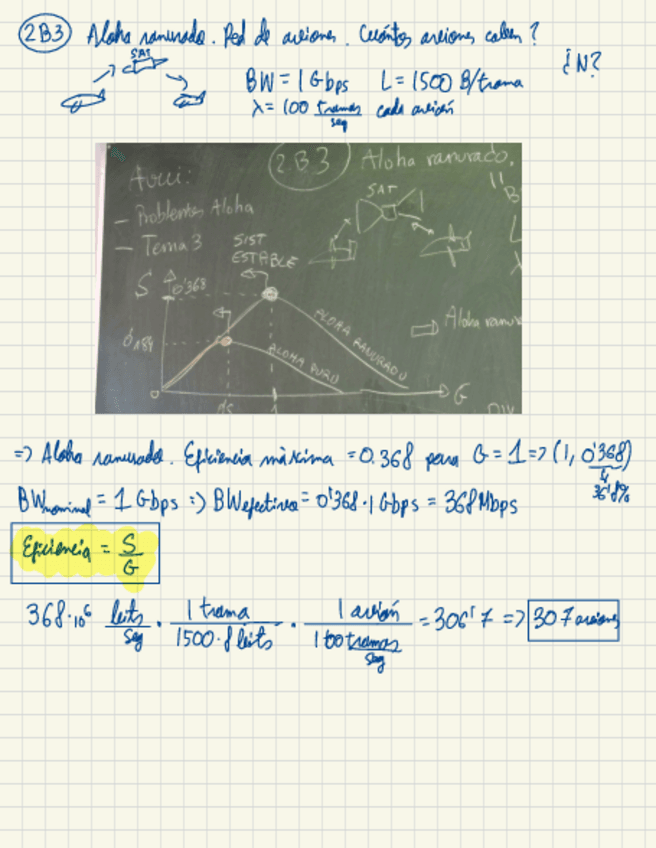 2B3 Aloha ranurado. Red de aviones. Cuántos aviones caben?
SAT
¿N?
BW = 1 Gbps L = 1500 B/trama
λ = 100 tramas/seg cada avión
2.B.3 Aloha ranurado.
Avui:
- Problemes Aloha
- Tema 3
SAT
SIST
ESTABLE
S
0'368
0'184
ALOHA RANURADO
ALOHA PURO
⇒ Aloha ranur
G
1
=> Aloha ranurado. Eficiencia máxima = 0.368 para G = 1 => (1, 0'368)
36'8%
BW nominal = 1 Gbps => BW efectiva = 0'368 · 1 Gbps = 368 Mbps
Eficiencia = S/G
368·10⁶ bits/seg · 1 trama/1500·8 bits · 1 avión/100 tramas/seg = 306'7 => 307 aviones